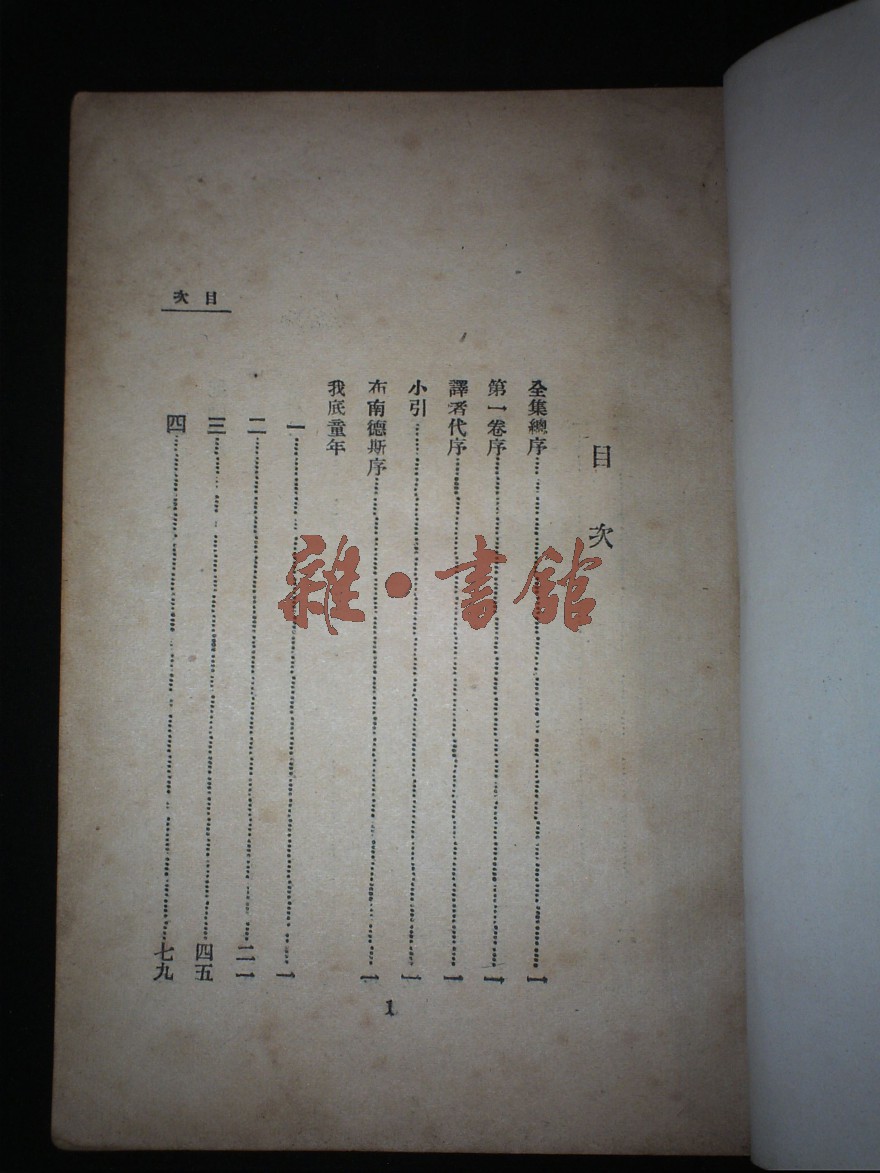 目次
目次
全集總序……一
第一卷序……一
譯者代序……一
小引……一
布南德斯序……一
我底童年
一……一
二……二一
三……四五
四……七九
1
雜·書館